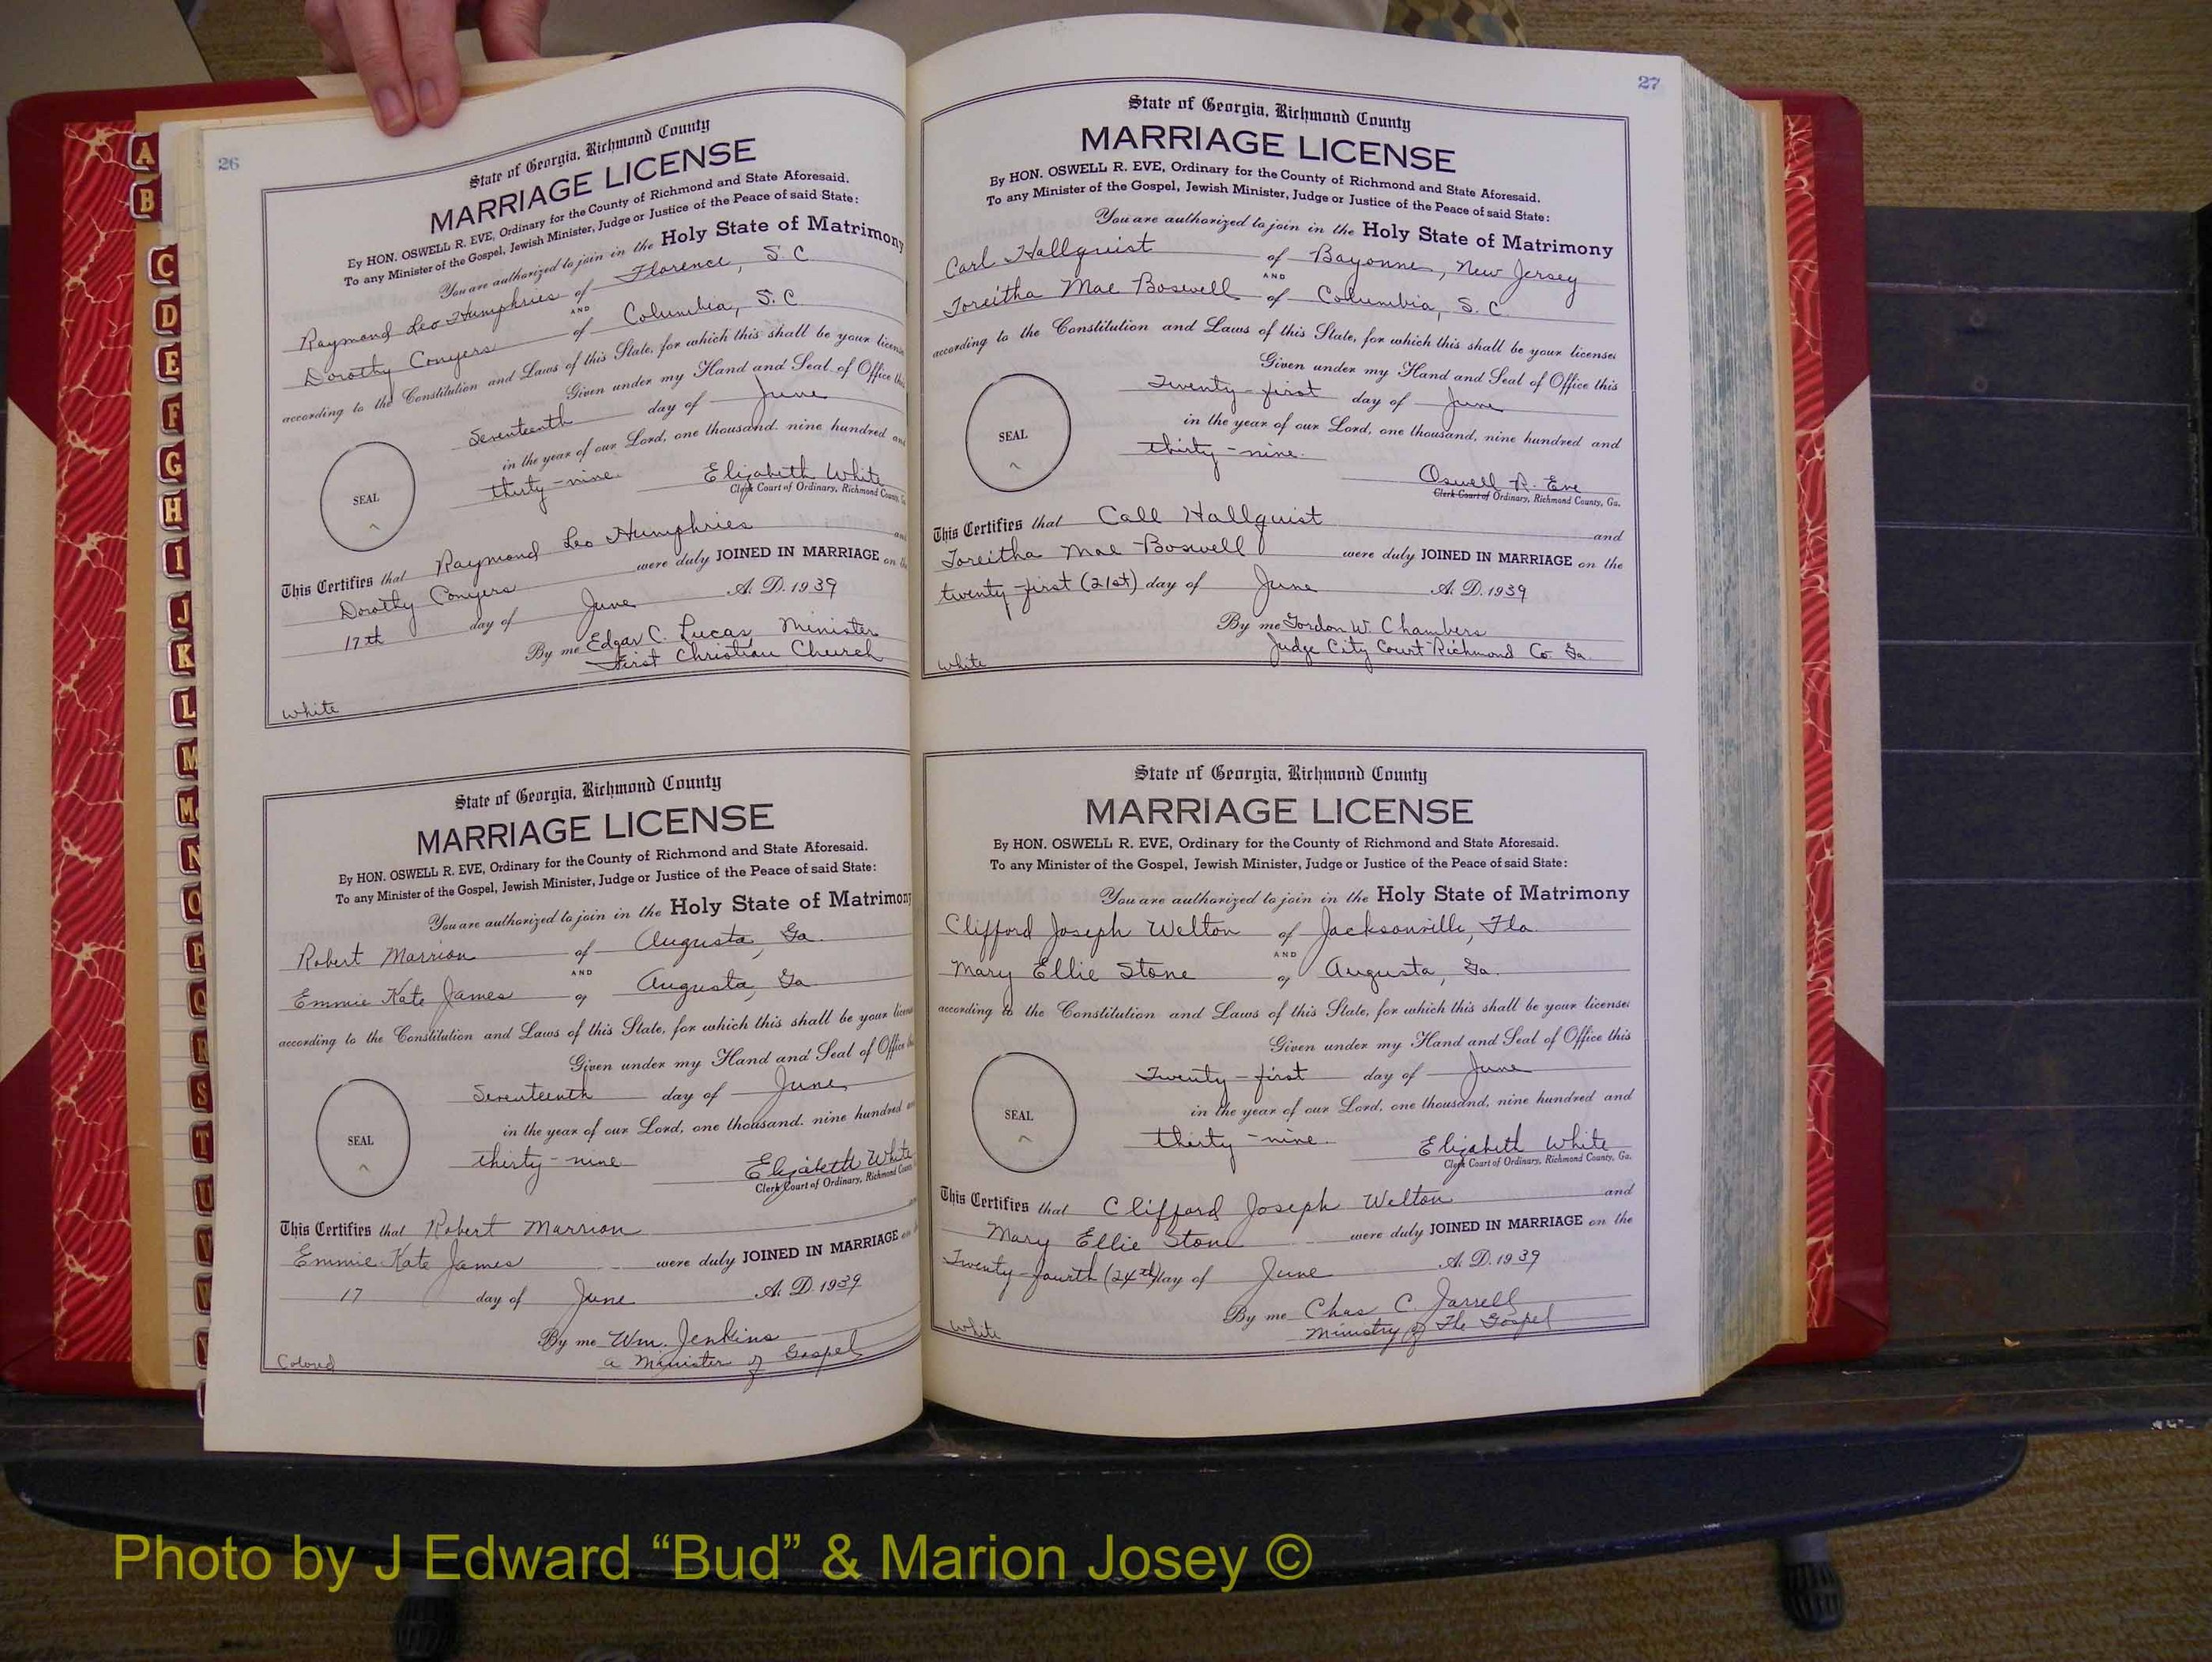 26
State of Georgia, Richmond County
MARRIAGE LICENSE
By HON. OSWELL R. EVE, Ordinary for the County of Richmond and State Aforesaid.
To any Minister of the Gospel, Jewish Minister, Judge or Justice of the Peace of said State:
You are authorized to join in the Holy State of Matrimony
Raymond Leo Humphries of Florence, S. C.
AND
Dorothy Conyers of Columbia, S. C.
according to the Constitution and Laws of this State, for which this shall be your license
Given under my Hand and Seal of Office this
Seventeenth day of June
in the year of our Lord, one thousand, nine hundred and
thirty-nine. Elizabeth White
SEAL
Clerk Court of Ordinary, Richmond County, Ga.
This Certifies that Raymond Leo Humphries and
Dorothy Conyers were duly JOINED IN MARRIAGE on the
17th day of June A. D. 1939
By me Edgar C. Lucas, Minister
First Christian Church
White
State of Georgia, Richmond County
MARRIAGE LICENSE
By HON. OSWELL R. EVE, Ordinary for the County of Richmond and State Aforesaid.
To any Minister of the Gospel, Jewish Minister, Judge or Justice of the Peace of said State:
You are authorized to join in the Holy State of Matrimony
Robert Marrion of Augusta, Ga.
AND
Emmie Kate James of Augusta, Ga.
according to the Constitution and Laws of this State, for which this shall be your license
Given under my Hand and Seal of Office
Seventeenth day of June
in the year of our Lord, one thousand, nine hundred
SEAL
thirty-nine Elizabeth White
Clerk Court of Ordinary, Richmond County
This Certifies that Robert Marrion
Emmie Kate James were duly JOINED IN MARRIAGE
17 day of June A. D. 1939
By me Wm. Jenkins
a Minister of Gospel
Colored
27
State of Georgia, Richmond County
MARRIAGE LICENSE
By HON. OSWELL R. EVE, Ordinary for the County of Richmond and State Aforesaid.
To any Minister of the Gospel, Jewish Minister, Judge or Justice of the Peace of said State:
You are authorized to join in the Holy State of Matrimony
Carl Hallquist of Bayonne, New Jersey
AND
Toreitha Mae Boswell of Columbia, S. C.
according to the Constitution and Laws of this State, for which this shall be your license:
Given under my Hand and Seal of Office this
Twenty-first day of June
in the year of our Lord, one thousand, nine hundred and
SEAL
thirty-nine.
Oswell R. Eve
Clerk Court of Ordinary, Richmond County, Ga.
This Certifies that Call Hallquist and
Toreitha Mae Boswell were duly JOINED IN MARRIAGE on the
twenty-first (21st) day of June A. D. 1939
By me Gordon W. Chambers
Judge City Court Richmond Co. Ga.
White
State of Georgia, Richmond County
MARRIAGE LICENSE
By HON. OSWELL R. EVE, Ordinary for the County of Richmond and State Aforesaid.
To any Minister of the Gospel, Jewish Minister, Judge or Justice of the Peace of said State:
You are authorized to join in the Holy State of Matrimony
Clifford Joseph Welton of Jacksonville, Fla.
AND
Mary Ellie Stone of Augusta, Ga.
according to the Constitution and Laws of this State, for which this shall be your license:
Given under my Hand and Seal of Office this
Twenty-first day of June
in the year of our Lord, one thousand, nine hundred and
SEAL
thirty-nine. Elizabeth White
Clerk Court of Ordinary, Richmond County, Ga.
This Certifies that Clifford Joseph Welton and
Mary Ellie Stone were duly JOINED IN MARRIAGE on the
Twenty-fourth (24th) day of June A. D. 1939
By me Chas C. Jarrell
Ministry of The Gospel
White
A
B
C
D
E
F
G
H
I
J
K
L
M
Mc
N
O
P
Q
R
S
T
U
V
W
Photo by J Edward “Bud” & Marion Josey ©